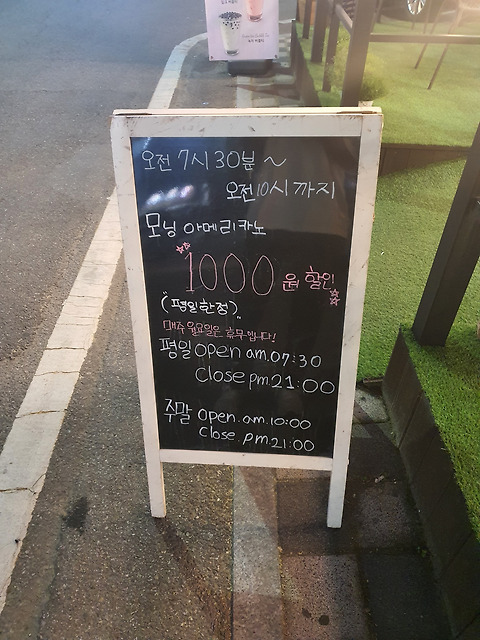 오전 7시 30분 ~
오전 10시 까지
모닝 아메리카노
1000 원 할인
("평일한정")
매주 월요일은 휴무입니다!
평일 open am.07:30
close pm.21:00
주말 open. am.10:00
close. pm.21:00